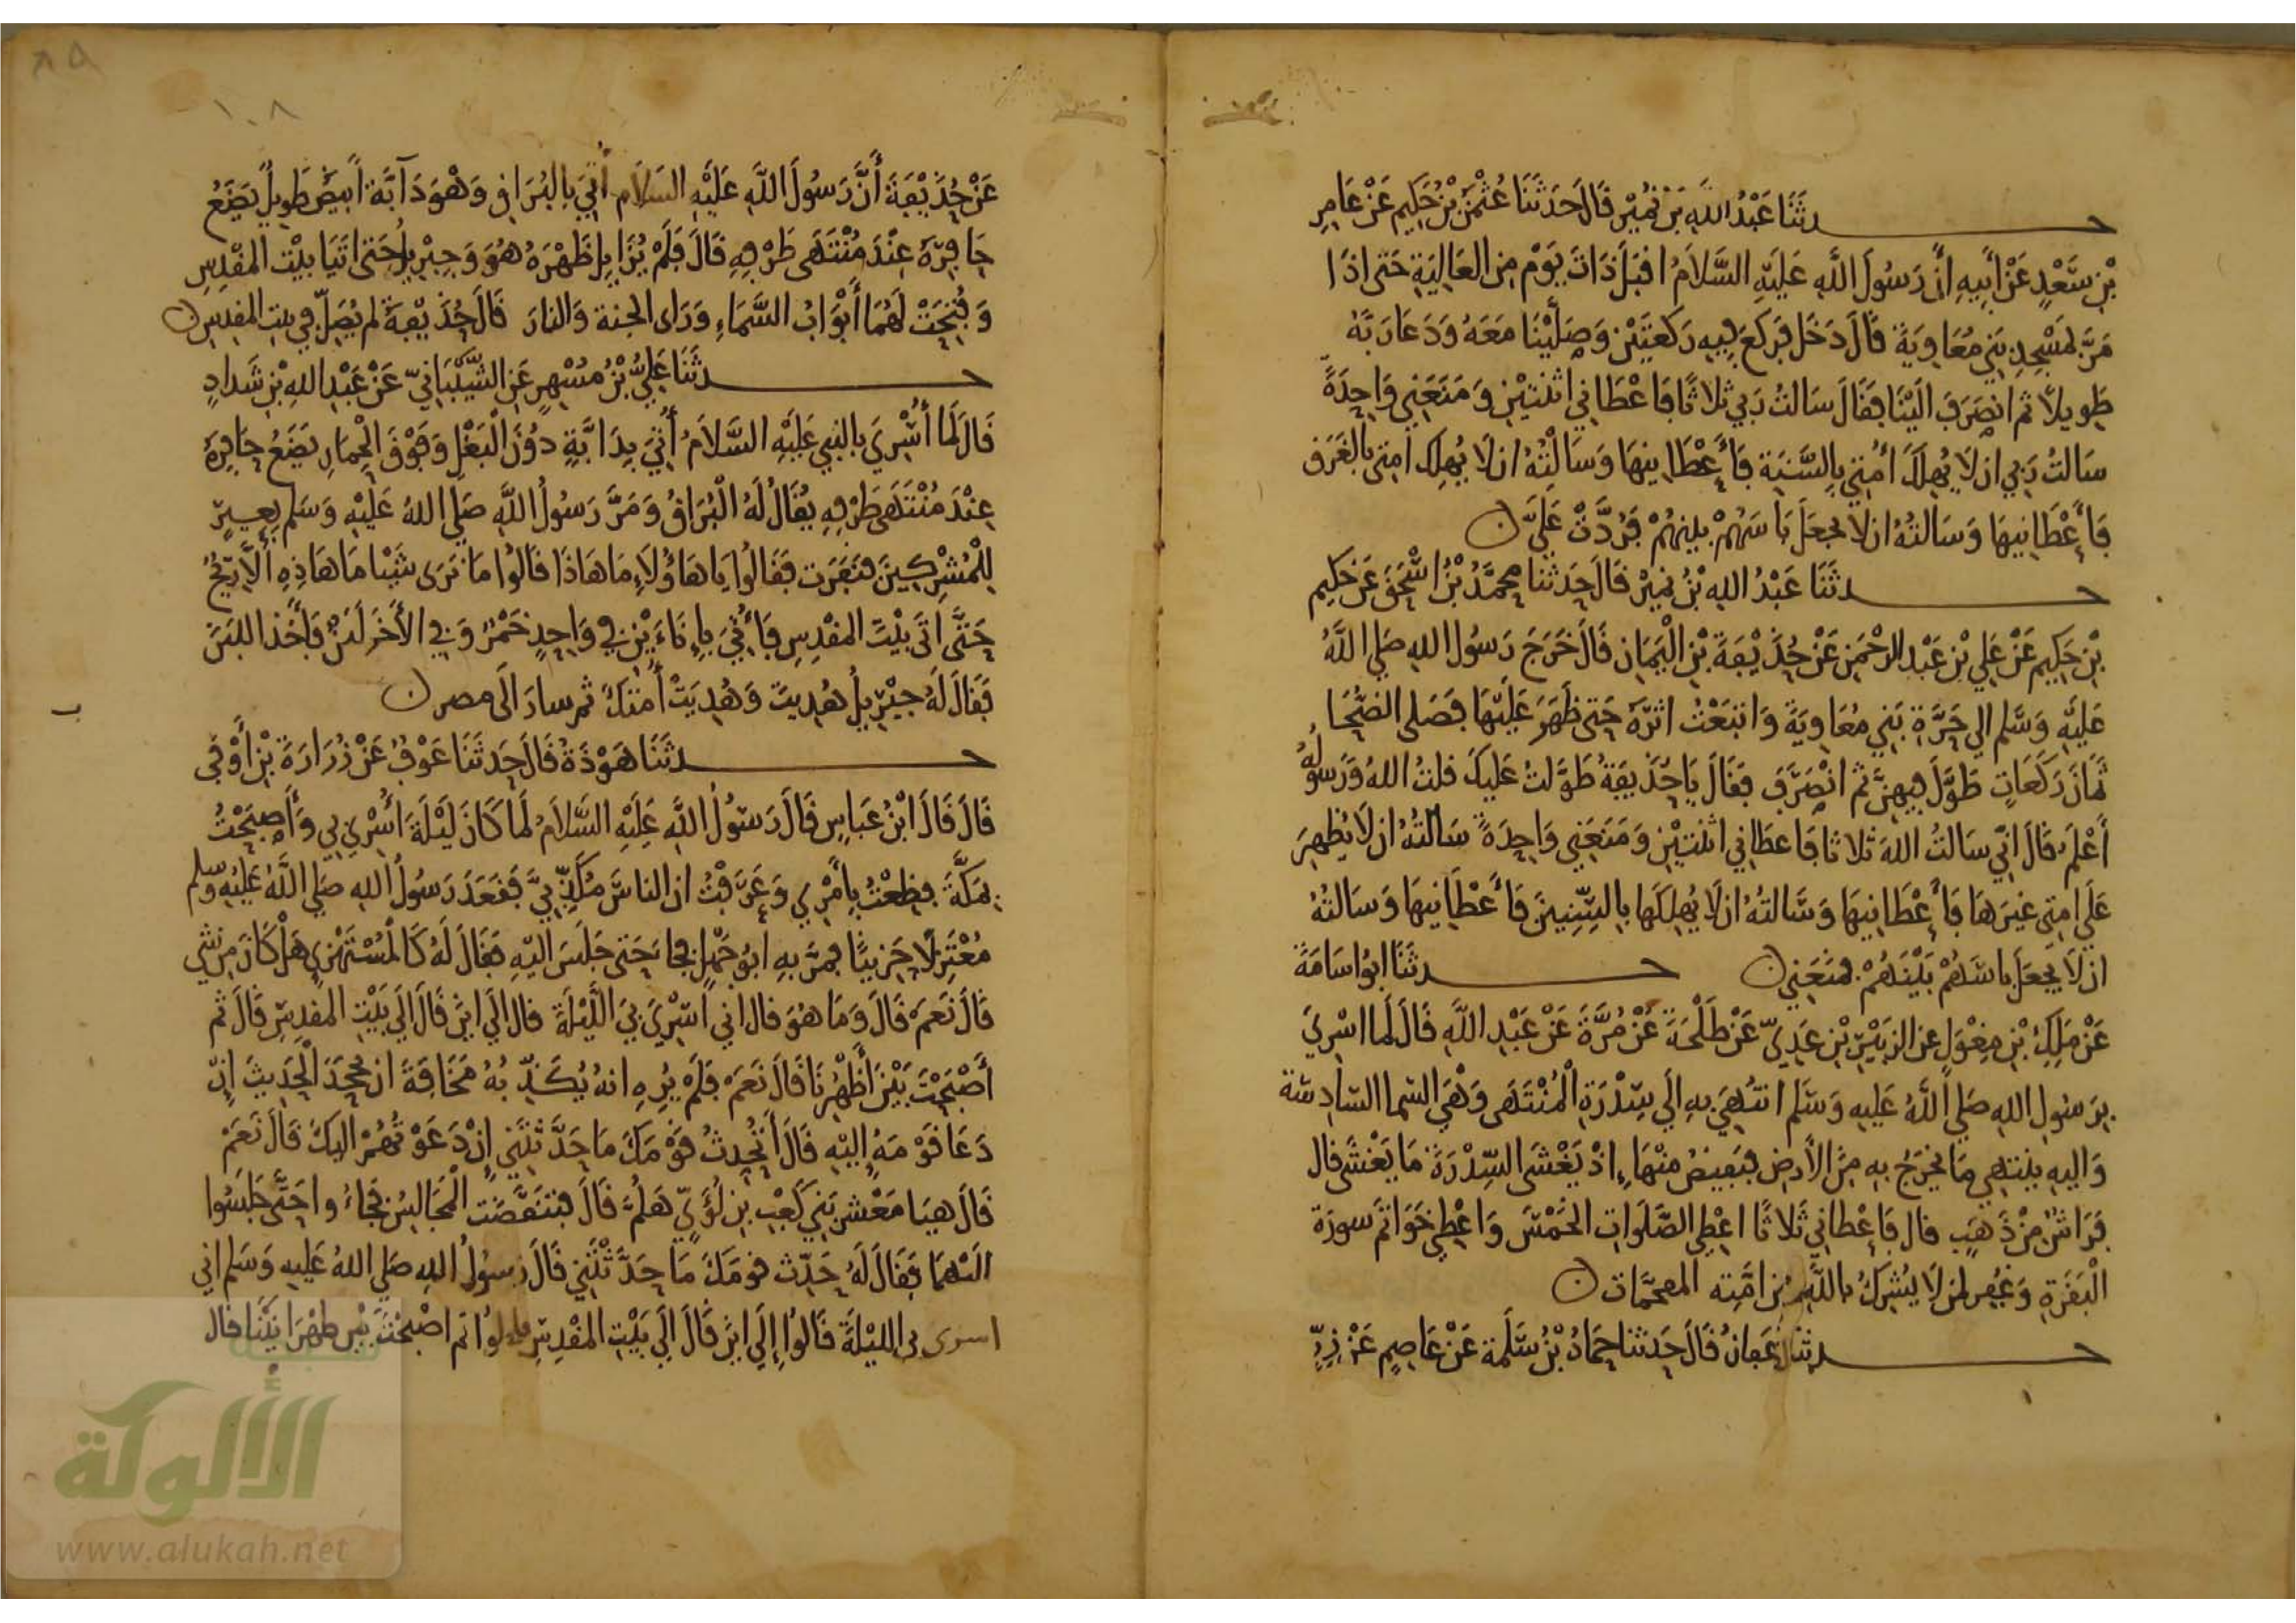 حدثنا عَبْدُ اللهِ بْن نُمَيْر قَالَ حَدثَنَا عُثْمٰنُ بْنُ حَكِيمٍ عَنْ عَامِرِ
بْنِ سَعْدٍ عَنْ أَبِيهِ أَنَّ رَسُولَ اللَّهِ عَلَيْهِ السَّلَامُ اقبَلَ ذَاتَ يَوْمٍ مِن العَالِيَةِ حَتى اذَا
مَرَّ بمَسْجِدِ بَنِي مُعَاوِيَةَ قَالَ دَخَلَ فَرَكَعَ فِيهِ رَكعتَيْنِ وَصَلَّيْنَا مَعَهُ وَدَعَا رَبَّهُ
طَوِيلاً ثم انصَرَفَ الَيْنَا فَقَالَ سَالتُ رَبي ثلاثًا فَاعْطَانِي اثنتَيْنِ وَمَنَعَنِي وَاحِدَةً
سَالتُ رَبي ان لَا يُهلَكَ أمتِي بِالسَّنَةِ فَأَعْطَانِيهَا وَسَالْتُهُ ان لا يُهلِكَ امتِي بالغَرَقِ
فَأَعْطَانِيهَا وَسَالتهُ ان لا يجعَلَ بَاسَهُمْ بينهُمْ فَرُدَّتْ عَلَيَّ
حدثَنَا عَبْدُ اللهِ بْنُ نميْر قَالَ حَدثنا مُحَمَّدُ بْنُ اسْحَقَ عَنْ حَكِيمِ
بْنِ حَكِيمٍ عَنْ عَلِي بْنِ عَبْدِ الرَّحْمَنِ عَنْ حُذَيْفَةَ بْنِ الْيَمَانِ قَالَ خَرَجَ رَسُولُ اللهِ صَلى اللَّهُ
عَلَيْهِ وَسَّلم الى حَرَّةِ بَنِي مُعَاوِيَةَ وَاتبَعْتُ اثرَهُ حَتى ظَهَرَ عَلَيْهَا فَصَلى الضُّحَا
ثَمَانَ رَكَعَاتٍ طَوَّلَ فِيهِنَّ ثم انْصَرَفَ فَقَالَ يَاحُذَيفَةُ طَوَّلتُ عَليكَ قلتُ اللهُ وَرَسولُهُ
أَعْلَمُ قَالَ اِنّي سَالتُ اللهَ ثلاثا فَاعطَانِي اثنتيْنِ وَمَنَعَنِي وَاحِدَةً سَالتهُ ان لَا يُظهِرَ
عَلَى امتِي غيرَهَا فَأَعْطَانِيهَا وَسَالتهُ ان لَا يُهلِكَهَا بِالسِّنِينَ فَأَعْطَانِيهَا وَسَالتُهُ
ان لَا يَجعَلَ بَاسَهُمْ بَيْنَهُمْ فمنَعَنِي حدثَنَا ابُو اسَامَةَ
عَنْ مَلِكِ بْنِ مِغْوَلٍ عن الزبَيْرِ بْنِ عَدِيٍّ عَنْ طَلْحَةَ عَنْ مُرَّةَ عَنْ عَبْدِ اللَّهِ قَالَ لَما اسْرِيَ
بِرَسُولِ اللهِ صَلى اللَّهُ عَليهِ وَسَّلم انتُهِيَ بِهِ الَى سِدْرَةِ الْمُنْتَهَى وَهْيَ السَّمَا السَّادِسَة
وَاليهِ ينتَهِي مَا يخرَجُ بِهِ مِنَ الأَرضِ فيَقبِضُ مِنْهَا إِذْ يَغْشَى السِّدْرَةَ مَا يَغْشَى قال
فَرَاشٌ مِنْ ذَهَبٍ قال فَاعْطانِي ثَلاثًا اعْطِى الصَّلَوَاتِ الخَمْسَ وَاعْطِى خَوَاتمَ سورَة
الْبَقَرَةِ وَغُفِر لمن لَا يُشرِكُ بِاللَّهِ مِن امَّتِه المقحمَات
حدثنا عَفانُ قَالَ حَدثنا حَمَادُ بْنُ سَلَمَة عَنْ عَاصِمٍ عَنْ زِرٍّ
عَنْ حُذَيْفَةَ أَنَّ رَسُولَ اللَّهِ عَلَيْهِ السَلَام أُتِيَ بِالبُرَاقِ وَهْوَ دَآبَّة أَبيَضُ طَوِيلٌ يَضَعُ
حَافِرَهُ عِنْدَ مُنْتَهَى طَرْفِهِ قَالَ فَلَمْ يُزَايِل ظَهْرَهُ هُوَ وَجِبْرِيلُ حَتى اتَيَا بَيْتَ المقْدِسِ
وَفُتِحَتْ لَهُمَا أَبْوَابُ السَّمَاءِ وَرَاى الجنة وَالنارَ قَالَ حُذَيْفَةُ لم يُصَلِّ فِي بيت المقدِس
حدثَنَا عَلِيُّ بْنُ مُسْهِرٍ عَنِ الشَّيْبَانِيّ عَنْ عَبْدِ اللهِ بْنِ شَدادٍ
قَالَ لَما أُسْرِيَ بالنبي عَلَيْهِ السَّلَامُ أُتِيَ بِدَابَّةٍ دُونَ الْبَغْلِ وَفَوْقَ الْحِمَارِ يَضَعُ حَافِرَهُ
عِنْدَ مُنْتَهَى طَرْفِهِ يُقَالُ لَهُ الْبُرَاقُ وَمَرَّ رَسُولُ اللَّهِ صَلى اللهُ عَلَيْهِ وَسَلم بِعِيرٍ
لِلْمُشْرِكِينَ فَنَفَرَت فَقَالُوا يَا هَاؤُلاءِ مَا هَاذَا قَالُوا مَا نَرَى شَيْئا مَا هَاذِهِ إلَّا رِيحٌ
حَتَّى اَتَى بَيْتَ المقْدِسِ فَأُتِيَ بِإِنَاءَيْنِ فِي وَاحِدٍ خَمْرٌ وَفِي الأَخَرِ لَبَنٌ فَأَخَذَ اللبَنَ
فَقَالَ لَهُ جِبْرِيلُ هُدِيتَ وَهُدِيَتْ أُمتكَ ثم سارَ الَى مصر
حدثَنَا هَوْذَةُ قَالَ حَدثَنَا عَوْفٌ عَنْ زُرَارَةَ بْنِ أَوْفَى
قَالَ قَالَ ابْنُ عَبَاسٍ قَالَ رَسُولُ اللَّهِ عَلَيْهِ السَّلَامُ لَما كَانَ لَيْلَةَ اُسْرِيَ بِي وَأَصبَحْتُ
بمَكَّةَ فظِعْتُ بِأَمْرِي وَعَرَفْتُ ان الناسَ مُكَذِّبِيَّ فَقَعَدَ رَسُولُ اللهِ صَلى اللَّهُ عَلَيْهِ وسلم
مُعْتَزِلًا حَزِينًا فمرَّ بِهِ ابُو جَهْلٍ فجاءَ حَتى جَلَسَ الَيْهِ فقَالَ لَهُ كَالْمُسْتَهْزِي هَلْ كَانَ مِن شي
قَالَ نَعَمْ قَالَ وَمَا هُوَ قال اني اُسْرِيَ بِيَ اللَّيْلَةَ قال الَى اينَ قَالَ الَى بَيْتِ المقدِسِ قَالَ ثم
أَصْبَحْتَ بَيْنَ أَظْهُرِنَا قَالَ نَعَمْ فَلَمْ يُرِهِ انهُ يُكَذِّبُهُ مَخَافَةَ ان يجحَدَ الْحَدِيثَ إِنْ
دَعَا قَوْمَهُ إلَيْهِ قَالَ أَتُحَدثُ قَوْمَكَ مَا حَدَّثْتَنِي إِنْ دَعَوْتُهُمْ اليكَ قَالَ نَعَمْ
قَالَ هيَا مَعْشرَ بَنِي كَعْبِ بنِ لُؤَيٍّ هَلُمَّ قَالَ فتنَفَّضَت الْمَجَالِسُ فجَاءُوا حَتَّى جَلَسُوا
الَيْهِمَا فَقَالَ لَهُ حَدِّث قومَكَ مَا حَدَّثْتَنِي قَالَ رَسولُ اللهِ صَلى اللهُ عَليهِ وَسَلم اني
اسرى بي الليْلَةَ قَالُوا إِلَى اينَ قَالَ الَى بَيْتِ المقْدِسِ قالوا ثم اصْبَحْتَ بَيْنَ ظهْرَانَيْنَا قال
١٠٨
٨٥
الألوكة
www.alukah.net